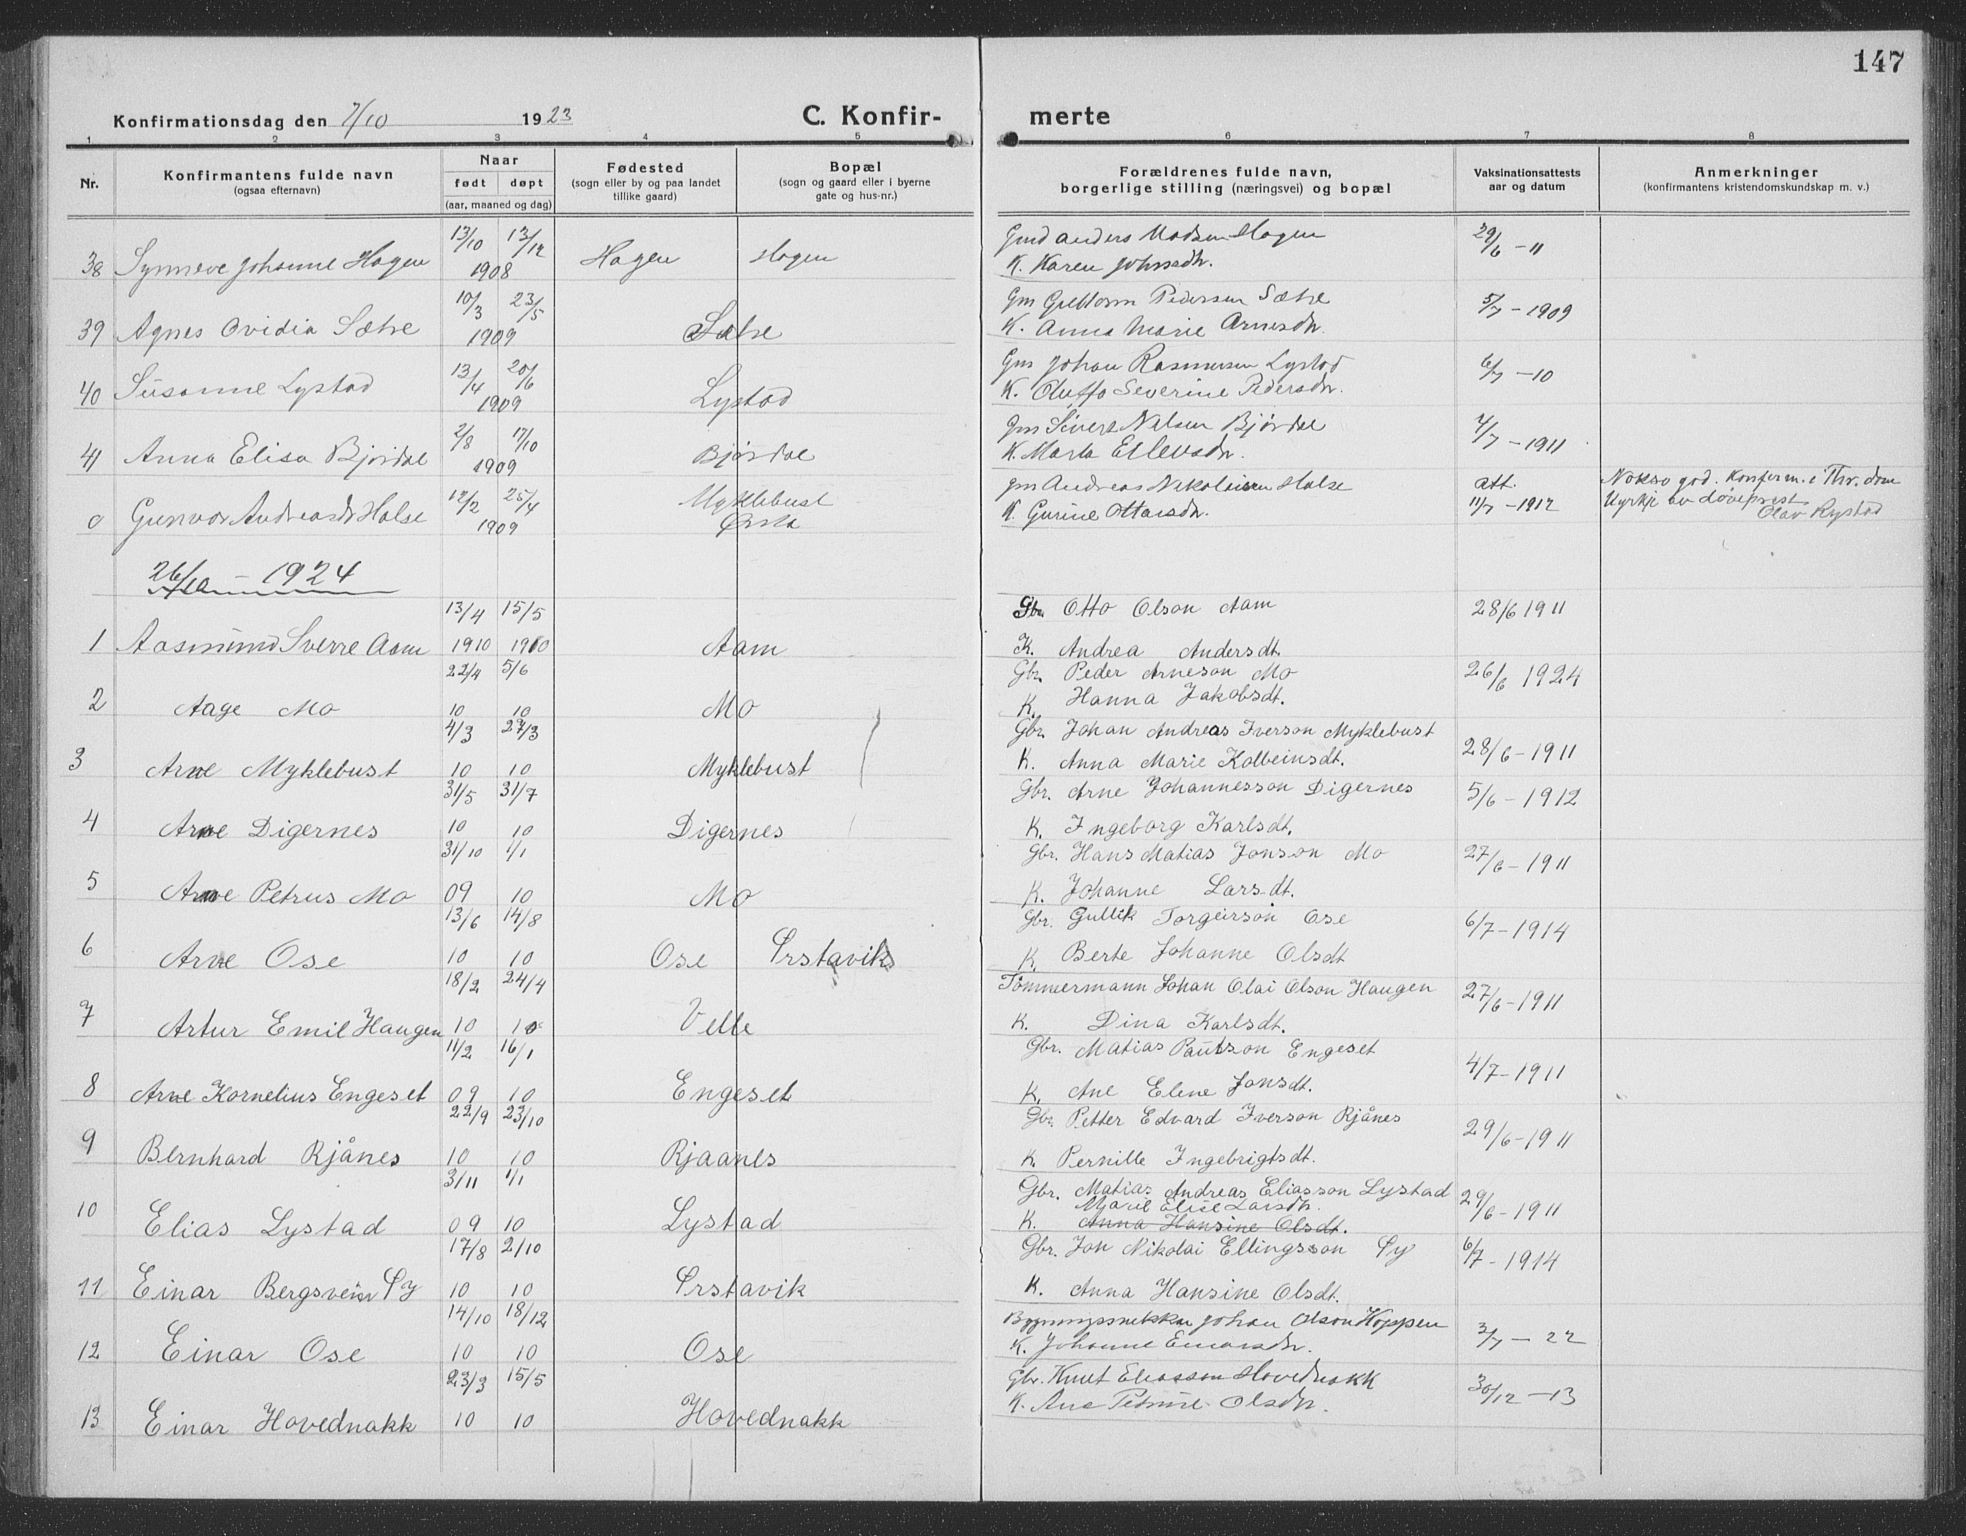 147
Konfirmationsdag den 7/10 1923 C. Konfir- merte
1 2 3 4 5 6 7 8
Nr.
Konfirmantens fulde navn
(ogsaa efternavn)
Naar
født døpt
(aar, maaned og dag)
Fødested
(sogn eller by og paa landet
tillike gaard)
Bopæl
(sogn og gaard eller i byerne
gate og hus-nr.)
Forældrenes fulde navn,
borgerlige stilling (næringsvei) og bopæl
Vaksinationsattests
aar og datum
Anmerkninger
(konfirmantens kristendomskundskap m. v.)
13/10 13/12 Gmd Anders Madsen Hagen 29/6 - 11
38 Synneve Johanne Hagen 1908 Hagen Hagen K. Karen Johnsdtr.
10/3 23/5 Gm Guttorm Pedersen Sætre 5/7 - 1909
39 Agnes Ovidia Sætre 1909 Sætre K. Anna Marie Arnesdtr.
13/4 20/6 Gm Johan Rasmussen Lystad 6/7 - 10
40 Susanne Lystad 1909 Lystad K. Oluffa Severine Pedersdtr.
2/8 17/10 Gm Sivert Nilsen Bjørdal 4/7 - 1911
41 Anna Elisa Bjørdal 1909 Bjørdal K. Marta Ellevsdtr.
12/2 25/4 Myklebust Gm Andreas Nikolaisen Halse att. Nokso god. Konferm. i Thr. dom
0 Gunvor Andreasdtr Halse 1909 Ørsta K. Gurine Ottarsdtr. 11/7 - 1912 kyrkje av døveprest
Olav Rystad
26/10 - 1924
13/4 15/5 Gbr. Otto Olson Aam 28/6 1911
1 Aasmund Sverre Aam 1910 1910 Aam K. Andrea Andersdt.
22/4 5/6 Gbr. Peder Arneson Mo 26/6 1924
2 Aage Mo 10 10 Mo K. Hanna Jakobsdt.
4/3 27/3 Gbr. Johan Andreas Iverson Myklebust
3 Arne Myklebust 10 10 Myklebust K. Anna Marie Kolbeinsdt. 28/6 - 1911
31/5 31/7 Gbr. Arne Johannesson Digernes 5/6 - 1912
4 Arne Digernes 10 10 Digernes K. Ingeborg Karlsdt.
31/10 1/1 Gbr. Hans Matias Jonson Mo 27/6 - 1911
5 Arne Petrus Mo 09 10 Mo K. Johanne Larsdt.
13/6 14/8 Gbr. Gullik Torgeirson Ose 6/7 - 1914
6 Arne Ose 10 10 Ose Ørstavik K. Berte Johanne Olsdt
18/2 24/4 Tømmermann Johan Olai Olson Haugen 27/6 - 1911
7 Artur Emil Haugen 10 10 Velle K. Dina Karlsdt.
11/2 16/1 Gbr. Matias Paulson Engeset 4/7 - 1911
8 Arne Kornelius Engeset 09 10 Engeset K. Ane Elene Jonsdt.
22/9 23/10 Gbr. Petter Edvard Iverson Rjånes 29/6 - 1911
9 Bernhard Rjånes 10 10 Rjaanes K. Pernille Ingebrigtsdt.
3/11 1/1 Gbr. Matias Andreas Eliasson Lystad 29/6 - 1911
Marie Elise Larsdtr.
10 Elias Lystad 09 10 Lystad K. Anna Hansine Olsdt.
17/8 2/10 Gbr. Jon Nikolai Ellingsson Øy 6/7 - 1914
11 Einar Bergsvein Øy 10 10 Ørstavik K. Anna Hansine Olsdt.
14/10 18/12 Bygningssnikkar Johan Olson Hoppen 3/7 - 22
12 Einar Ose 10 10 Ose K. Johanne Einarsdtr.
23/3 15/5 Gbr. Knut Eliassen Hovednakk 30/12 - 13
13 Einar Hovednakk 10 10 Hovednakk K. Ane Petrine Olsdtr.